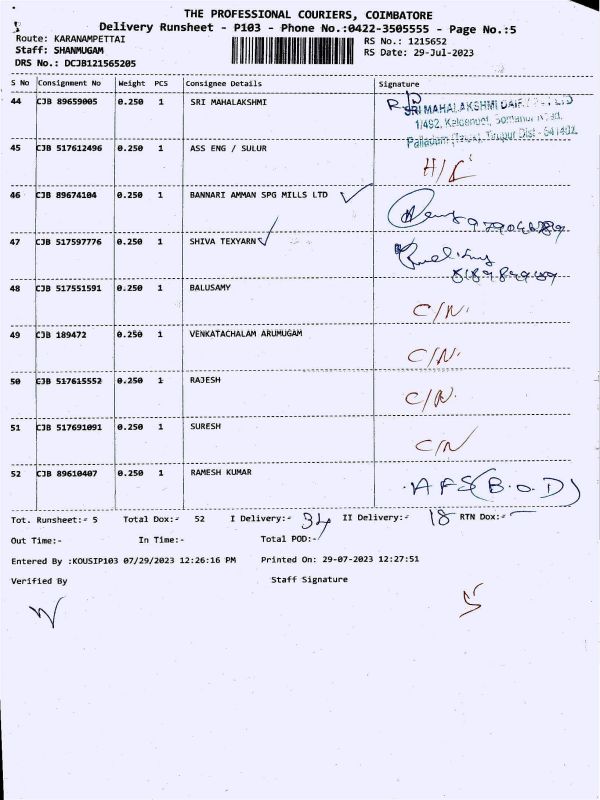 THE PROFESSIONAL COURIERS, COIMBATORE
Delivery Runsheet - P103 - Phone No.:0422-3505555 - Page No.:5
Route: KARANAMPETTAI RS No.: 1215652
Staff: SHANMUGAM RS Date: 29-Jul-2023
DRS No.: DCJB121565205
S No Consignment No Weight PCS Consignee Details Signature
44 CJB 89659005 0.250 1 SRI MAHALAKSHMI
SRI MAHALAKSHMI
45 CJB 517612496 0.250 1 ASS ENG / SULUR
Palladam Tirupur Dist - 641402
46 CJB 89674104 0.250 1 BANNARI AMMAN SPG MILLS LTD
47 CJB 517597776 0.250 1 SHIVA TEXYARN
48 CJB 517551591 0.250 1 BALUSAMY
C/N.
49 CJB 189472 0.250 1 VENKATACHALAM ARUMUGAM
C/N.
50 CJB 517615552 0.250 1 RAJESH
C/N.
51 CJB 517691091 0.250 1 SURESH
C/N
52 CJB 89610407 0.250 1 RAMESH KUMAR
AFS (B.O.D)
Tot. Runsheet:- 5 Total Dox:- 52 I Delivery:- 34 II Delivery:- 18 RTN Dox:-
Out Time:- In Time:- Total POD:-
Entered By :KOUSIP103 07/29/2023 12:26:16 PM Printed On: 29-07-2023 12:27:51
Verified By Staff Signature